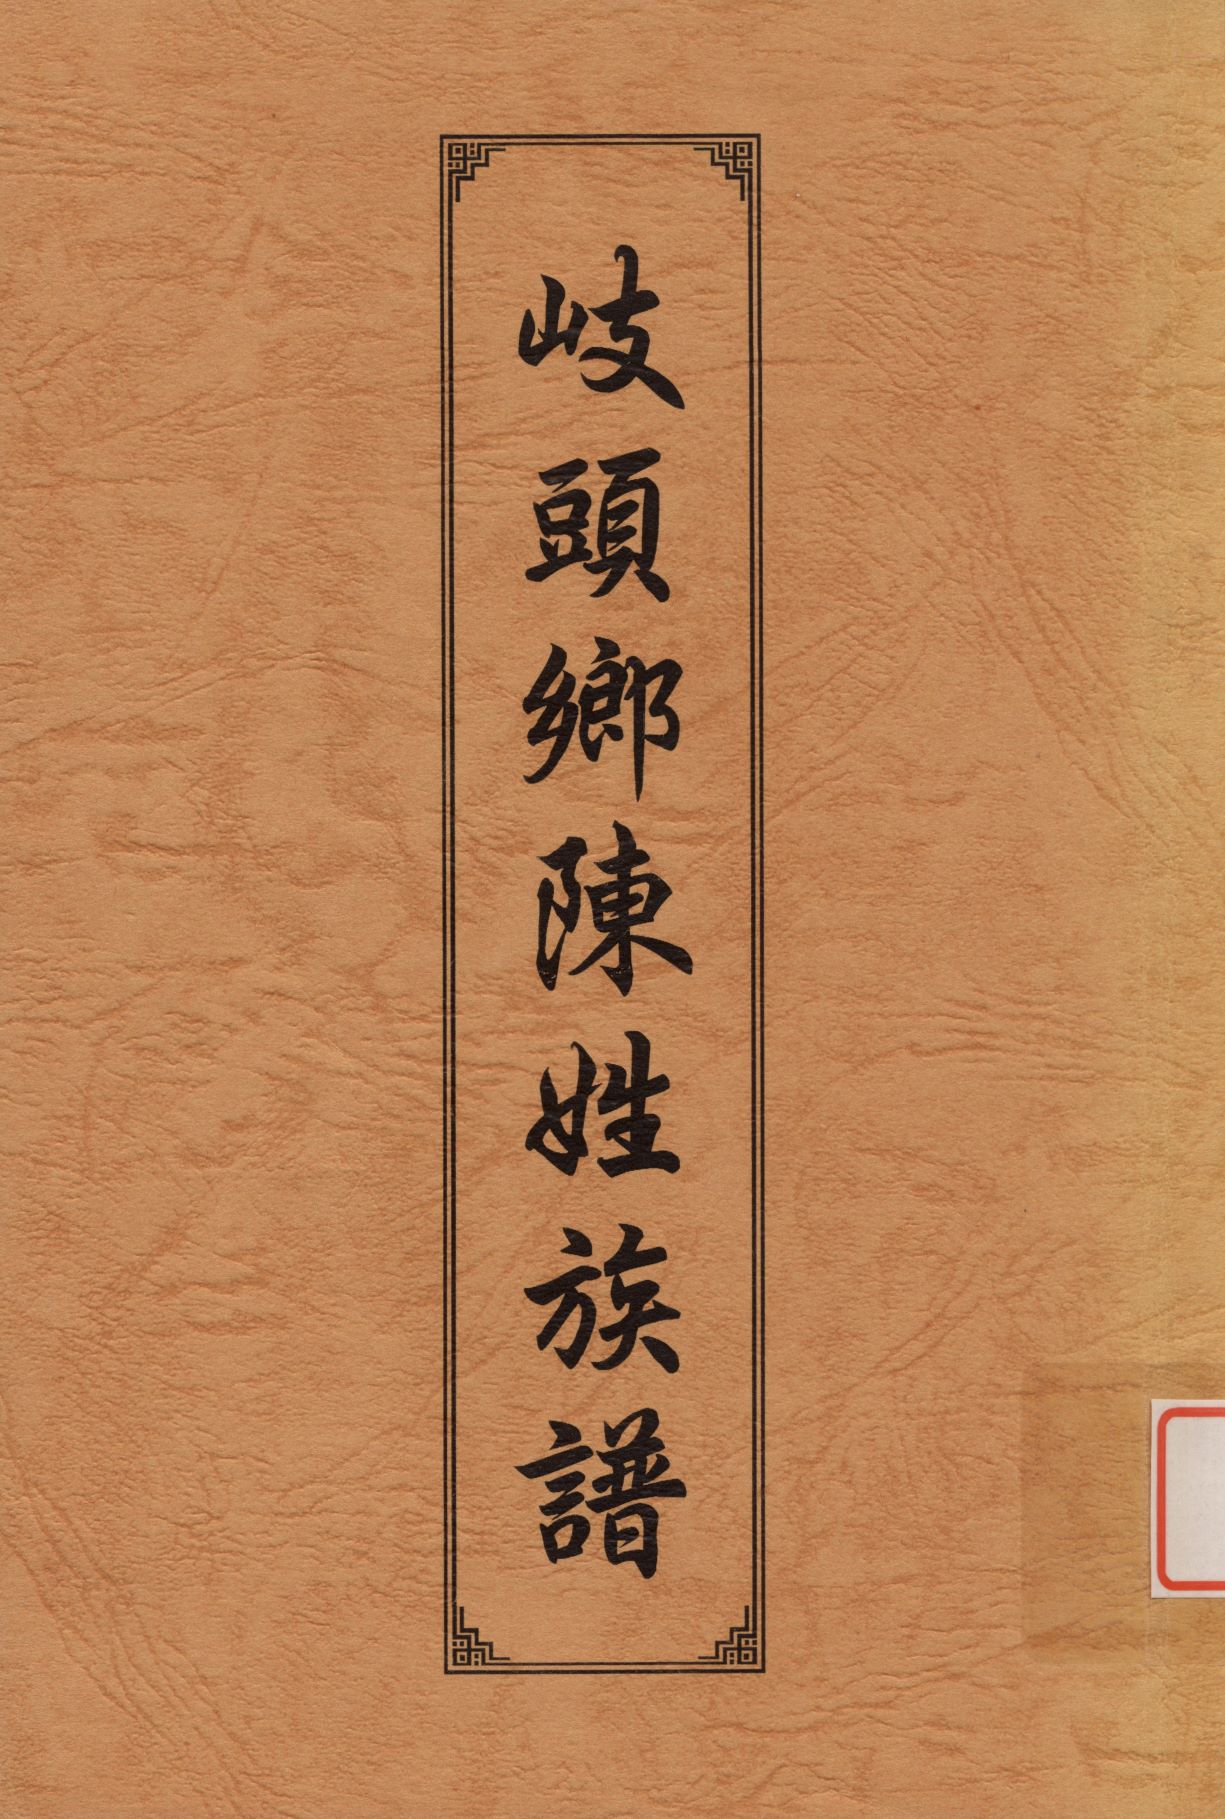 岐頭鄉陳姓族譜